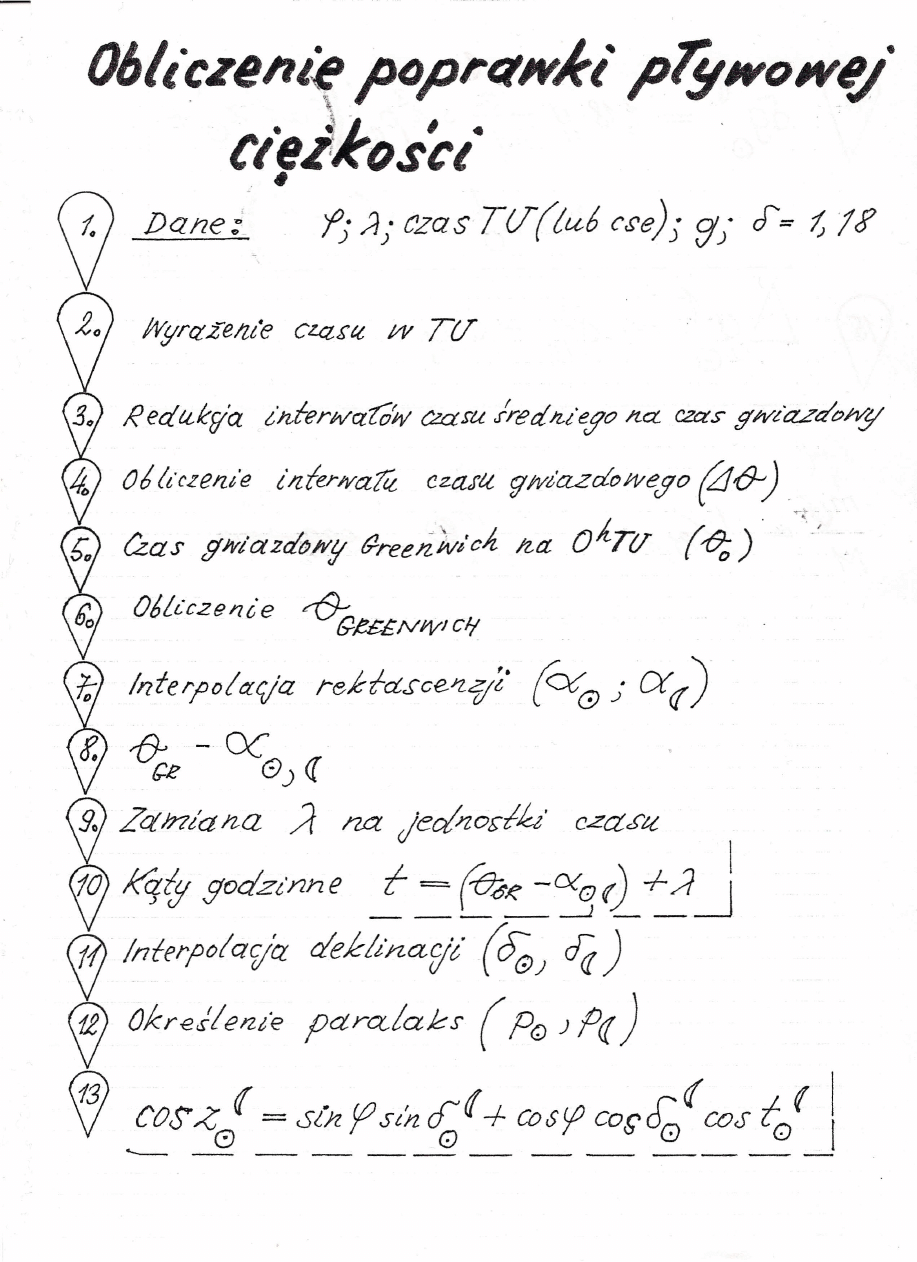 Obliczenie poprawki pływowej
ciężkości
1. Dane: φ; λ; czas TU (lub cse); g; δ = 1,18
2. Wyrażenie czasu w TU
3. Redukcja interwałów czasu średniego na czas gwiazdowy
4. Obliczenie interwału czasu gwiazdowego (Δθ)
5. Czas gwiazdowy Greenwich na 0ʰTU (θ₀)
6. Obliczenie θ GREENWICH
7. Interpolacja rektascenzji (α☉ ; α☾)
8. θ GR - α ☉,☾
9. Zamiana λ na jednostki czasu
10 Kąty godzinne t = (θ GR - α ☉,☾) + λ
11 Interpolacja deklinacji (δ☉, δ☾)
12 Określenie paralaks (p☉, p☾)
13 cos z ☾☉ = sin φ sin δ ☾☉ + cos φ cos δ ☾☉ cos t ☾☉